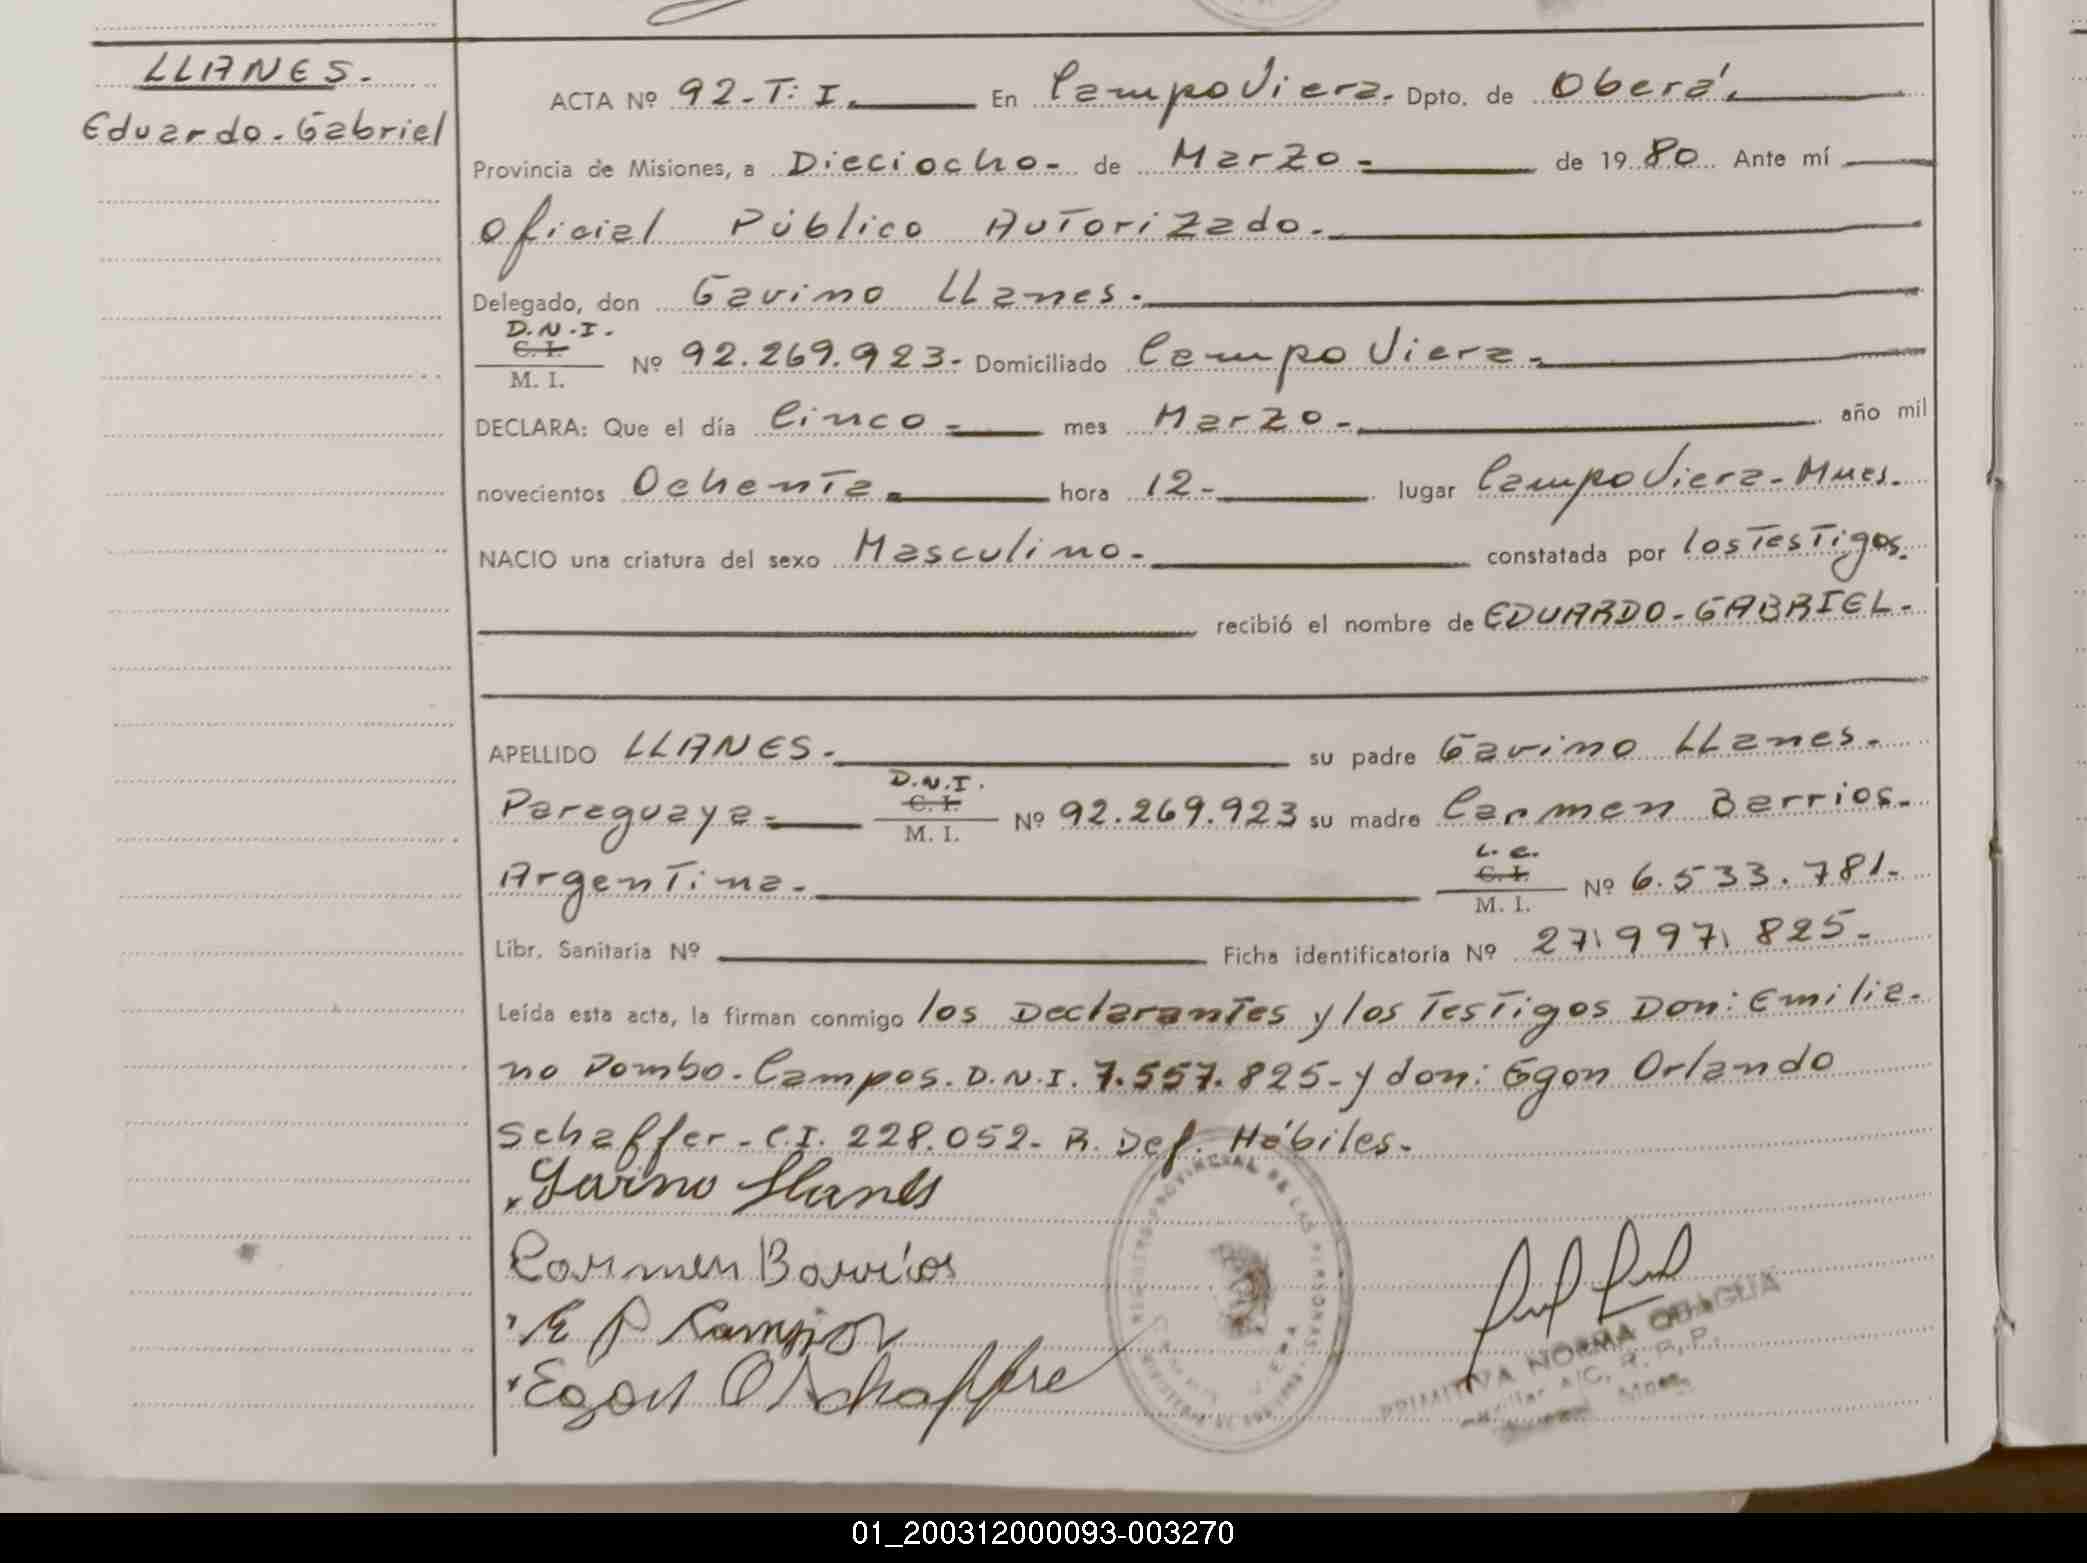 LLANES.
Eduardo-Gabriel
ACTA Nº 92-T: I. En Campo Viera. Dpto. de Oberá.
Provincia de Misiones, a Dieciocho- de Marzo- de 1980 Ante mí
Oficial Público Autorizado.
Delegado, don Gavino LLanes.
D.N.I.
C.I.
M. I. Nº 92.269.923- Domiciliado Campo Viera-
DECLARA: Que el día Cinco- mes Marzo- año mil
novecientos Ochenta- hora 12- lugar Campo Viera-Mnes.
NACIO una criatura del sexo Masculino- constatada por los Testigos.
recibió el nombre de EDUARDO-GABRIEL-
APELLIDO LLANES. su padre Gavino LLanes.
D.N.I.
C.I.
Paraguaya- M. I. Nº 92.269.923 su madre Carmen Barrios.
L. E.
C.I.
Argentina- M. I. Nº 6.533.781-
Libr. Sanitaria Nº Ficha identificatoria Nº 27\997\825-
Leída esta acta, la firman conmigo los Declarantes y los Testigos Don: Emilia-
no Pombo-Campos. D.N.I. 7.557.825- y don: Egon Orlando
Schaffer-C.I. 228.052- R. Def. Hábiles-
Gavino Llanes
Carmen Barrios
E P Campos
Egon O Schaffer
REGISTRO PROVINCIAL DE LAS PERSONAS
PRIMITIVA NORMA
A/C. R. P. P.
Mnes.
01_200312000093-003270